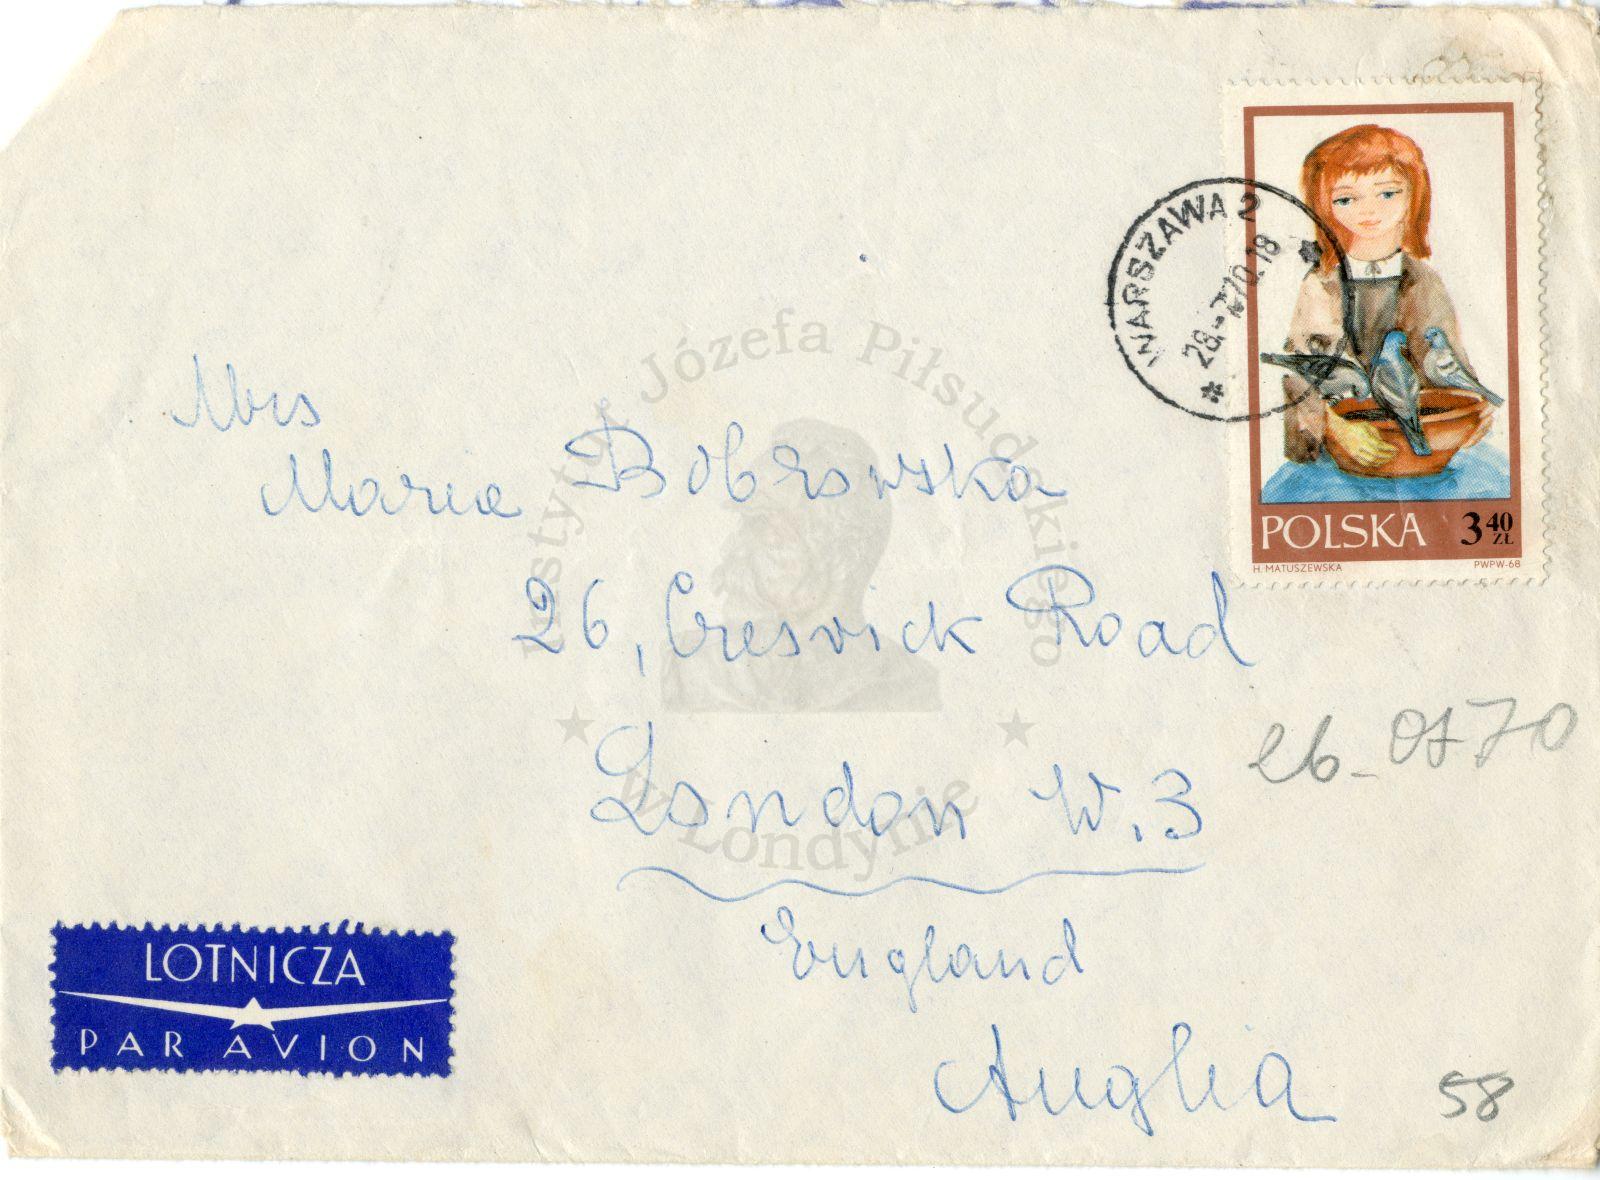 WARSZAWA 2
28.-7.70.18
POLSKA 3 40 ZŁ
H. MATUSZEWSKA PWPW-68
Instytut Józefa Piłsudskiego
w Londynie
Mrs
Maria Bobrowska
26, Cresvick Road
London W.3
England
Anglia
58
LOTNICZA
PAR AVION